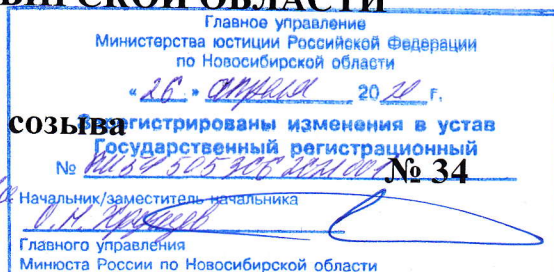 БИРСКОЙ ОБЛАСТИ
Главное управление
Министерства юстиции Российской Федерации
по Новосибирской области
« 26 » апреля 20 г.
созыва
Зарегистрированы изменения в устав
Государственный регистрационный
№
№ 34
Начальник/заместитель начальника
Главного управления
Минюста России по Новосибирской области